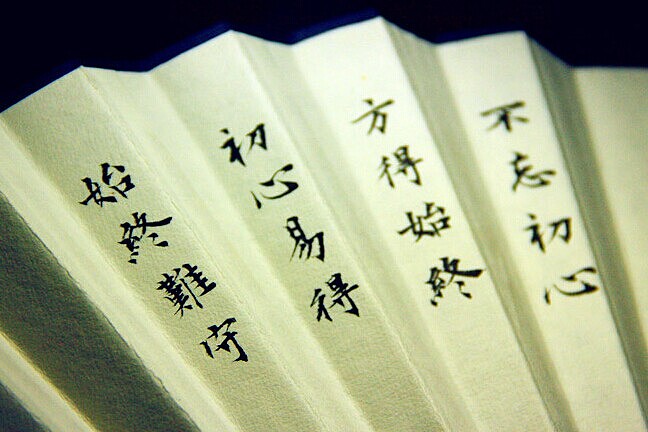 不忘初心
方得始終
初心易得
始終難守